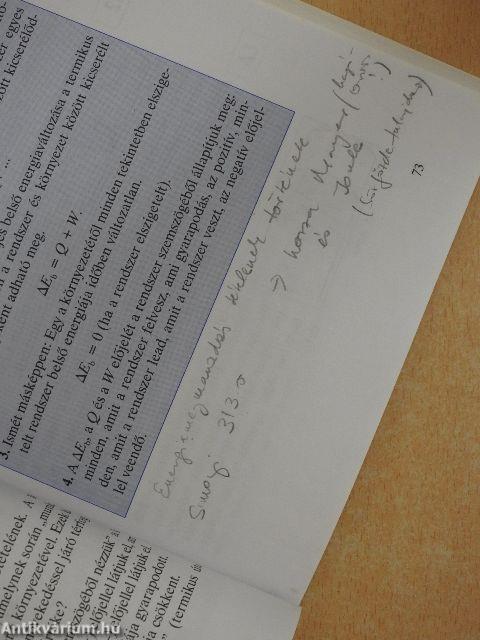 zer egyes
zött kicserélőd-
...
jes belső energiaváltozása a termikus
n a rendszer és környezet között kicserélt
ként adható meg.
ΔE_b = Q + W.
3. Ismét másképpen: Egy a környezetétől minden tekintetben elszige-
telt rendszer belső energiája időben változatlan.
ΔE_b = 0 (ha a rendszer elszigetelt).
4. A ΔE_b, a Q és a W előjelét a rendszer szemszögéből állapítjuk meg:
minden, amit a rendszer felvesz, ami gyarapodás, az pozitív, min-
den, amit a rendszer lead, amit a rendszer veszt, az negatív előjel-
lel veendő.
Energiamegmaradás tételének története
Simonyi 313 o
→ Mayer
és Joule
73
tételének. A
melynek során „mun
környezetével. Ezek
ekedéssel járó térfog
ke?
zögéből nézzük"
előjellel látjuk el, az
előjellel látjuk el
ája gyarapodott.
ia csökkent.
" (termikus
Antikvárium.hu